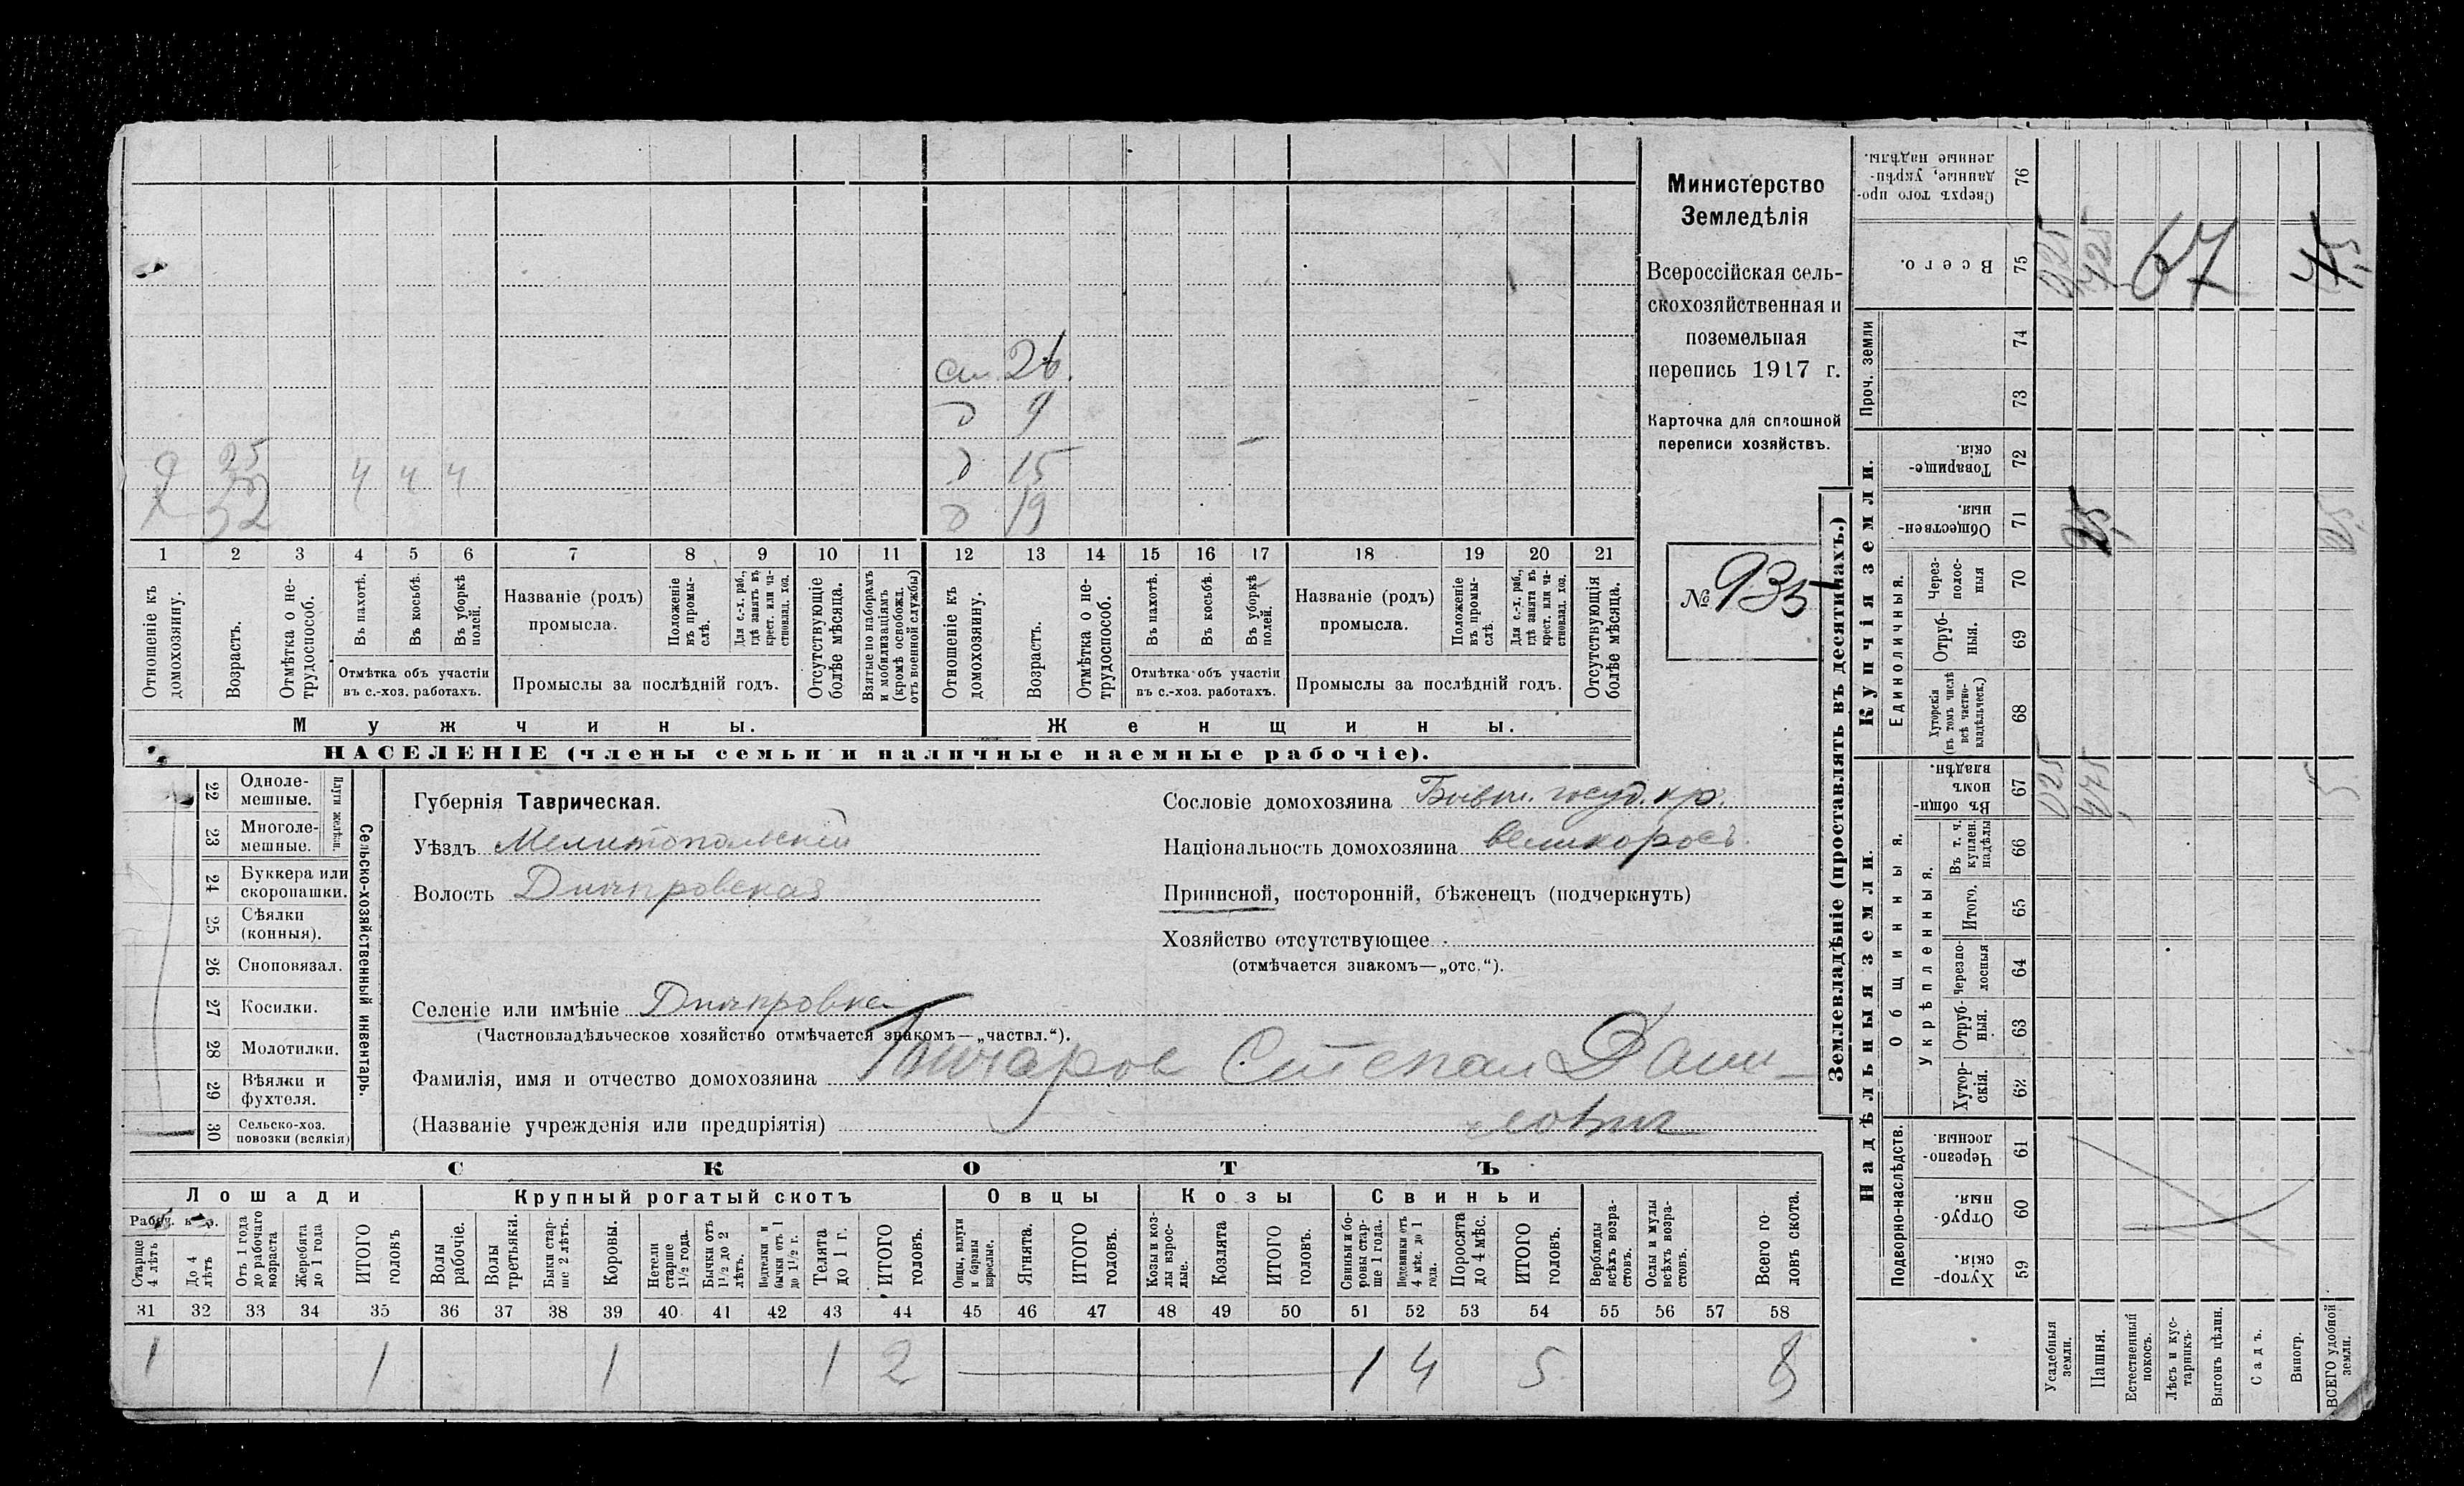 Министерство
Земледѣлія
Всероссійская сель-
скохозяйственная и
поземельная
перепись 1917 г.
Карточка для сплошной
переписи хозяйствъ.
№ 935
26.
д 9
25 4 4 4 д 15
52 д 19
1 2 3 4 5 6 7 8 9 10 11 12 13 14 15 16 17 18 19 20 21
Отношеніе къ домохозяину.
Возрастъ.
Отмѣтка о не-трудоспособ.
Въ пахотѣ.
Въ косьбѣ.
Въ уборкѣ полей.
Отмѣтка объ участіи
въ с.-хоз. работахъ.
Названіе (родъ)
промысла.
Положеніе въ промы-слѣ.
Для с.-х. раб., гдѣ занятъ въ крест. или ча-стновлад. хоз.
Промыслы за послѣдній годъ.
Отсутствующіе болѣе мѣсяца.
Взятые по наборамъ и мобилизаціямъ (кромѣ освобожд. отъ военной службы)
Отношеніе къ домохозяину.
Возрастъ.
Отмѣтка о не-трудоспособ.
Въ пахотѣ.
Въ косьбѣ.
Въ уборкѣ полей.
Отмѣтка объ участіи
въ с.-хоз. работахъ.
Названіе (родъ)
промысла.
Положеніе въ промы-слѣ.
Для с.-х. раб., гдѣ занята въ крест. или ча-стновлад. хоз.
Промыслы за послѣдній годъ.
Отсутствующія болѣе мѣсяца.
Мужчины. Женщины.
НАСЕЛЕНІЕ (члены семьи и наличные наемные рабочіе).
22 Одноле-мешные.
23 Многоле-мешные.
Плуги желѣзн.
24 Буккера или скоропашки.
25 Сѣялки (конныя).
26 Сноповязал.
27 Косилки.
28 Молотилки.
29 Вѣялки и фухтеля.
30 Сельско-хоз. повозки (всякія)
Сельско-хозяйственный инвентарь.
Губернія Таврическая.
Уѣздъ Мелитопольскій
Волость Днѣпровская
Селеніе или имѣніе Днѣпровка
(Частновладѣльческое хозяйство отмѣчается знакомъ—„частвл.“).
Фамилія, имя и отчество домохозяина Гончаров Степан Дани-
(Названіе учрежденія или предпріятія) лович
Сословіе домохозяина Бывш. госуд. кр.
Національность домохозяина великоросъ
Приписной, посторонній, бѣженецъ (подчеркнуть)
Хозяйство отсутствующее
(отмѣчается знакомъ—„отс.“).
СКОТЪ
Лошади Крупный рогатый скотъ Овцы Козы Свиньи
Рабоч. воз.
Старше 4 лѣтъ
До 4 лѣтъ
Отъ 1 года до рабочаго возраста
Жеребята до 1 года
ИТОГО головъ
Волы рабочіе.
Волы третьяки.
Быки стар-ше 2 лѣтъ.
Коровы.
Нетели старше 1½ года.
Бычки отъ 1½ до 2 лѣтъ.
Подтелки и бычки отъ 1 до 1½ г.
Телята до 1 г.
ИТОГО головъ.
Овцы, валухи и бараны взрослые.
Ягнята.
ИТОГО головъ.
Козы и коз-лы взрос-лые.
Козлята
ИТОГО головъ.
Свиньи и бо-ровы стар-ше 1 года.
Подсвинки отъ 4 мѣс. до 1 года.
Поросята до 4 мѣс.
ИТОГО головъ.
Верблюды всѣхъ возра-стовъ.
Ослы и мулы всѣхъ возра-стовъ.
Всего го-ловъ скота.
31 32 33 34 35 36 37 38 39 40 41 42 43 44 45 46 47 48 49 50 51 52 53 54 55 56 57 58
1 1 1 1 2 1 4 5 8
Землевладѣніе (проставлять въ десятинахъ.)
Надѣльныя земли. Купчія земли.
Проч. земли
Подворно-наслѣдств.
Общинныя.
Укрѣпленныя.
Единоличныя.
Сверхъ того про-данные, укрѣп-ленные надѣлы. 76
Всего. 75
74
73
Товарище-скія 72
Обществен-ныя. 71
Через-полос-ныя 70
Отруб-ныя. 69
Хуторскія (въ томъ числѣ всѣ частно-владѣльческ.) 68
Въ общи-номъ владѣн. 67
Въ т. ч. куплен. надѣлы 66
Итого. 65
Черезпо-лосныя 64
Отруб-ныя. 63
Хутор-скія. 62
Черезпо-лосныя. 61
Отруб-ныя. 60
Хутор-скія 59
Усадебныя земли.
Пашня.
Естественный покосъ.
Лѣсъ и кус-тарникъ.
Выгонъ цѣлин.
Садъ.
Виногр.
ВСЕГО удобной земли.
025
67
025